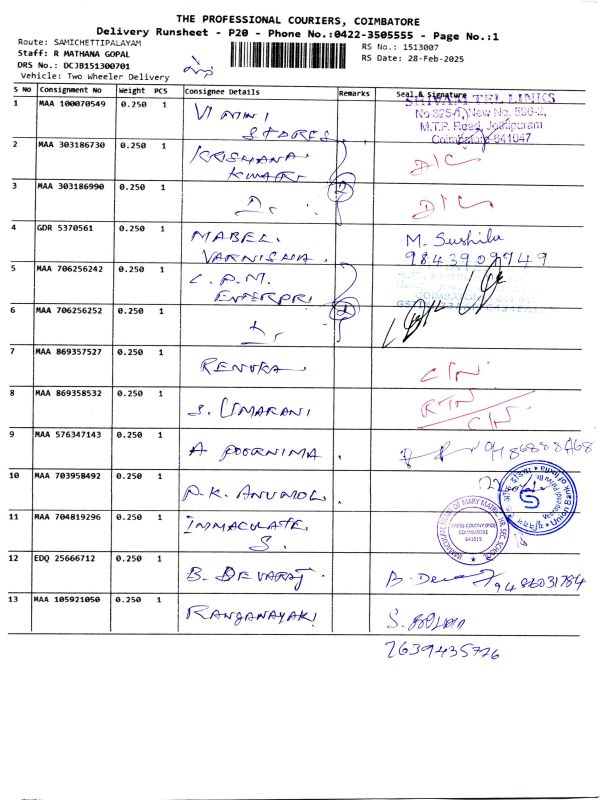 THE PROFESSIONAL COURIERS, COIMBATORE
Delivery Runsheet - P20 - Phone No.:0422-3505555 - Page No.:1
Route: SAMICHETTIPALAYAM
Staff: R MATHANA GOPAL
DRS No.: DCJB151300701
Vehicle: Two Wheeler Delivery
RS No.: 1513007
RS Date: 28-Feb-2025
S No Consignment No Weight PCS Consignee Details Remarks Seal & Signature
1 MAA 100070549 0.250 1 VIMINI STORES
SHIVAM TEL LINKS
No 325-1, New No. 596-2,
M.T.P. Road, Jothipuram
Coimbatore-641047
2 MAA 303186730 0.250 1 KRISHANA KUMAR D/C
2
3 MAA 303186990 0.250 1 D, D/C
4 GDR 5370561 0.250 1 MABEL. VARNISHA. M. Sushila
9843909749
5 MAA 706256242 0.250 1 C.P.M. ENTERPRI
2
6 MAA 706256252 0.250 1 D,
7 MAA 869357527 0.250 1 RENUKA C/N
8 MAA 869358532 0.250 1 S. UMARANI RTN
C/N
9 MAA 576347143 0.250 1 A POORNIMA.
10 MAA 703958492 0.250 1 P.K. ANUMOL.
Union Bank of India
11 MAA 704819296 0.250 1 IMMACULATE. S.
PRESS COLONY (PO)
COIMBATORE
641019
12 EDQ 25666712 0.250 1 B. DEVARAJ. B. Deva 9486031784
13 MAA 105921050 0.250 1 RANGANAYAKI
7639435776